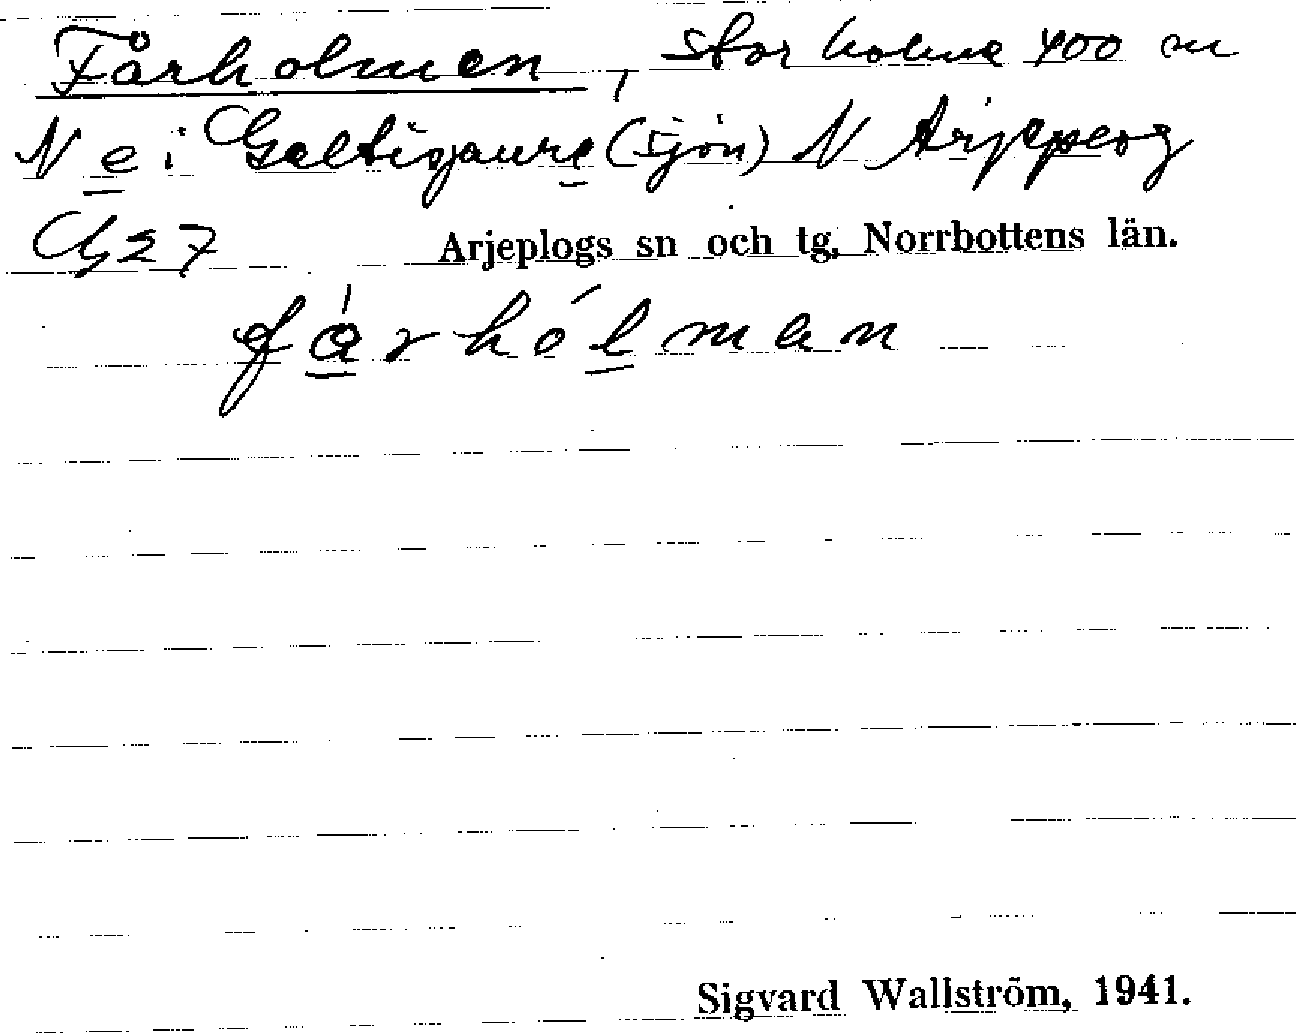 Fårholmen, stor holme 400 m
N e i Galtisjaure (sjön) N Arjeplog
Cg 27 Arjeplogs sn och tg, Norrbottens län.
fárhólman
Sigvard Wallström, 1941.